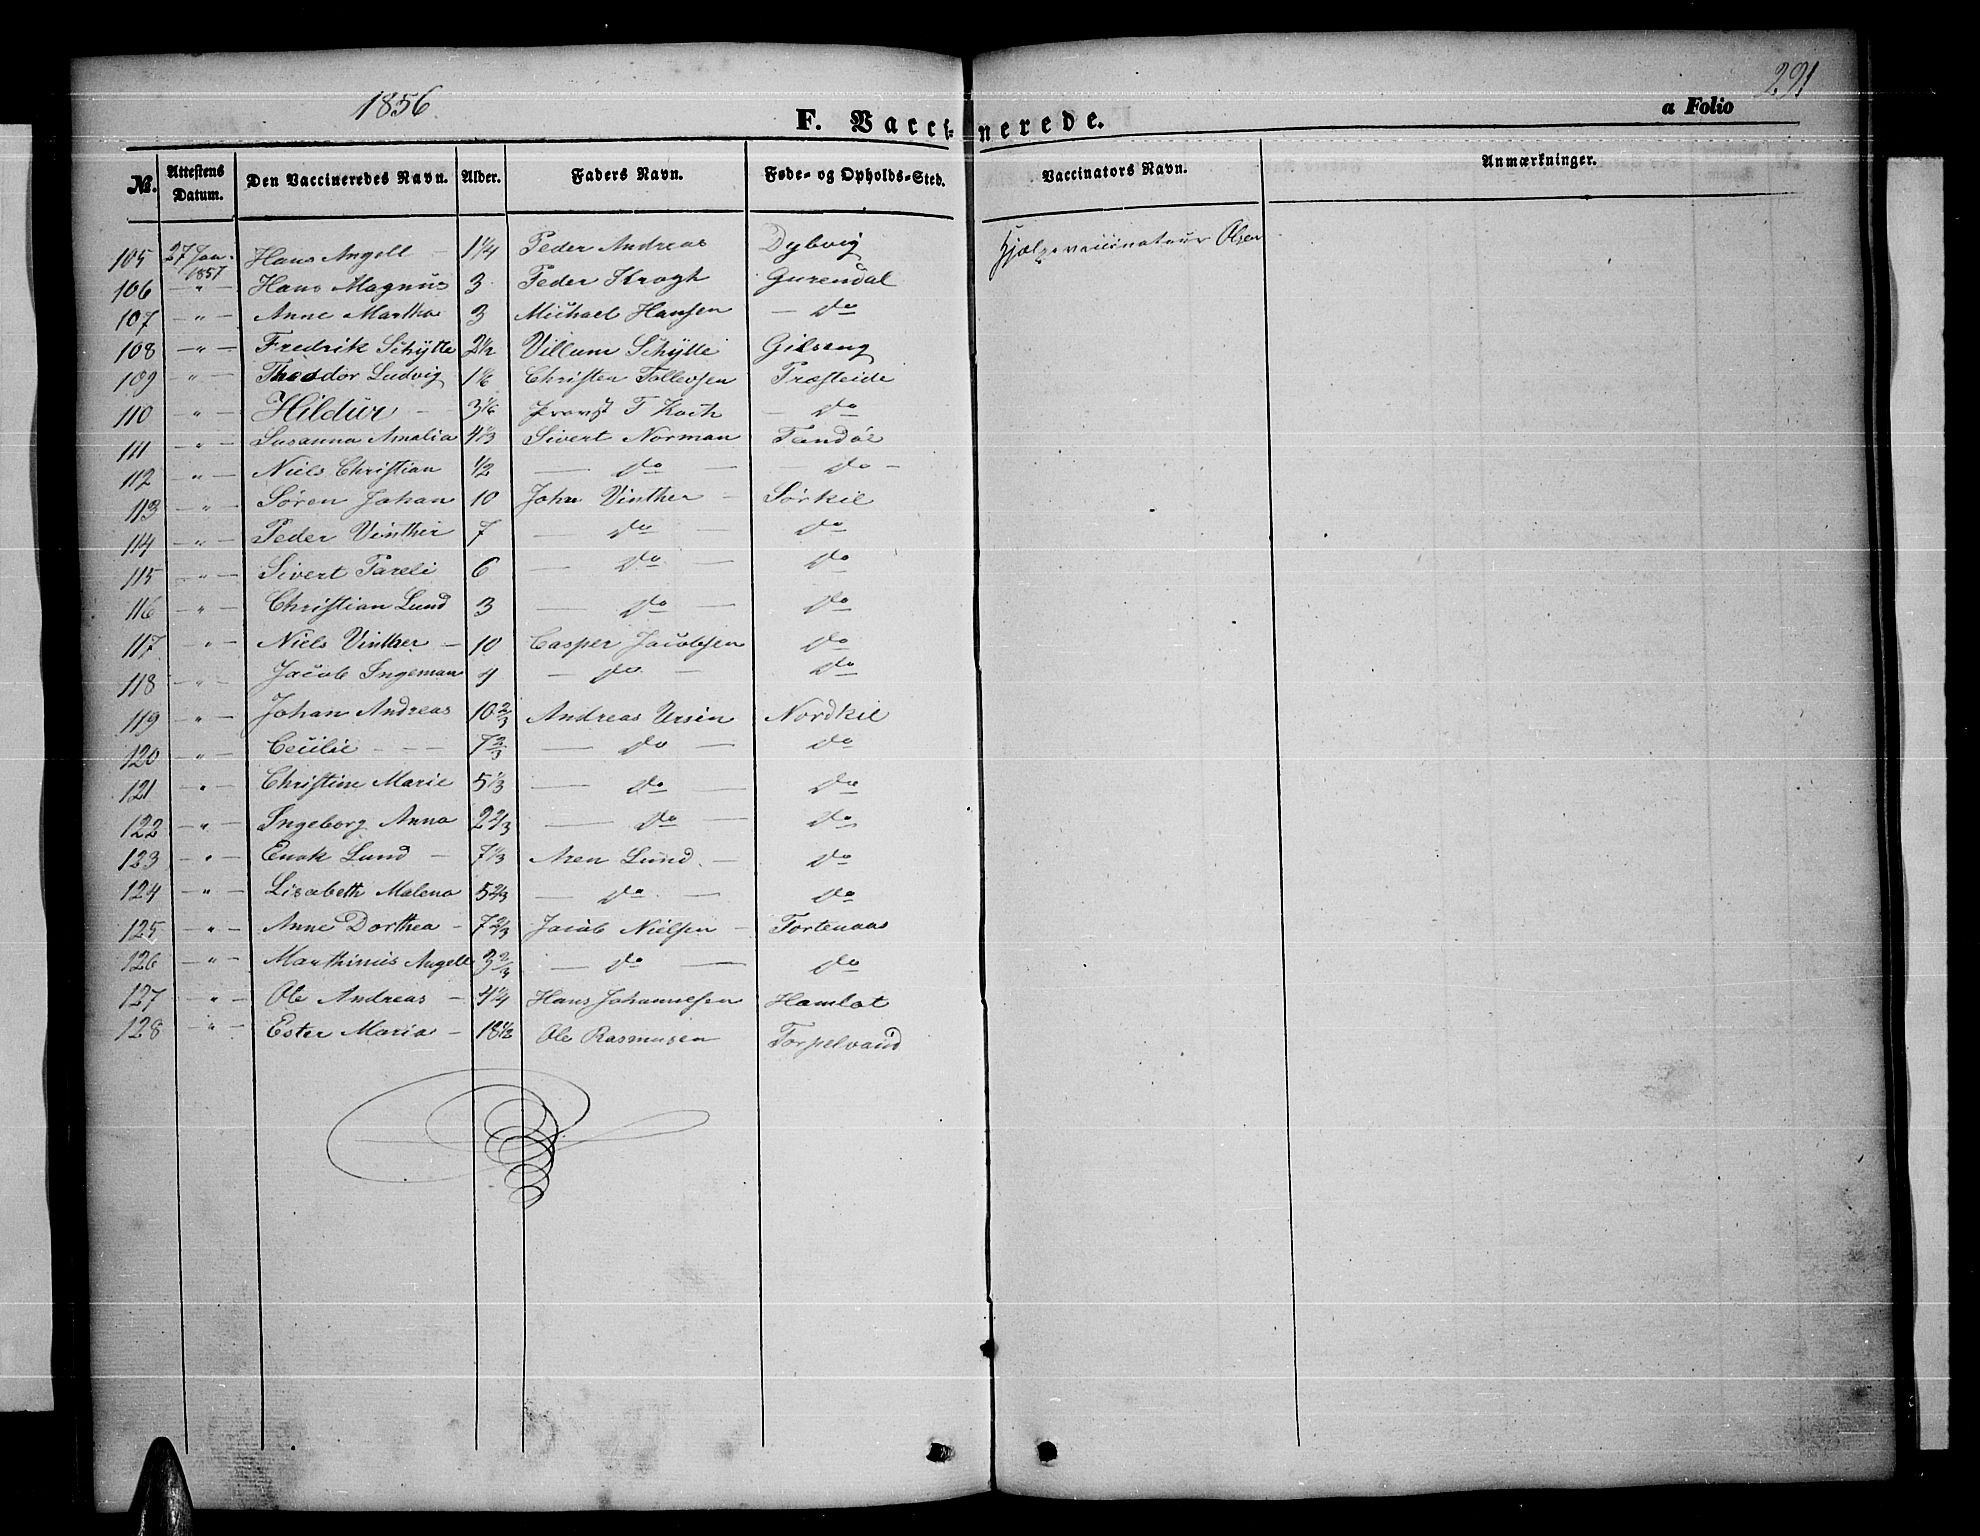 1856.
291
F. Vaccinerede.
a Folio
No. Attestens Datum. Den Vaccineredes Navn. Alder. Faders Navn. Føde- og Opholds-Sted. Vaccinators Navn. Anmærkninger.
105 27 Jan. 1857 Hans Angell – 1 1/4 Peder Andreas Dybvig Hjælpevaccinateur Olsen
106 – " – Hans Magnus 3 Peder Krogh Gurendal
107 – " – Anne Martha 3 Michael Hansen – do
108 – " – Fredrik Schytte 2 1/2 Villum Schytte Gilseng
109 – " – Theodor Ludvig 1 1/6 Christen Tollevsen Præsteide
110 – " – Hildur – 3 1/6 Provst F Koch – do
111 – " – Susanna Amalia 4 1/3 Sivert Norman
112 – " – Niels Christian 1/2 – do – do –
113 – " – Søren Johan 10 John Vinther – Sørkil
114 – " – Peder Vinther 7 – do do
115 – " – Sivert Pareli 6 – do – do
116 – " – Christian Lund 3 – do – do
117 – " – Niels Vinther – 10 Casper Jacobsen do
118 – " – Jacob Ingeman 4 – do – do
119 – " – Johan Andreas 10 2/3 Andreas Ursin Nordkil
120 – " – Cecilie – – – 7 2/3 – do – do
121 – " – Christine Marie 5 1/3 – do – do
122 – " – Ingeborg Anna 2 2/3 – do – do
123 – " – Enok Lund – 7 1/3 Aren Lund. – do
124 – " – Lisabeth Malena 5 2/3 – do – do
125 – " – Anne Dorthea – 7 2/3 Jacob Nielsen – Fortenaas
126 – " – Marthinus Angell 3 2/3 – do – do
127 – " – Ole Andreas – 4 1/4 Hans Johannesen Hamlot
128 – " – Ester Maria – 18 1/2 Ole Rasmusen Forpelvand